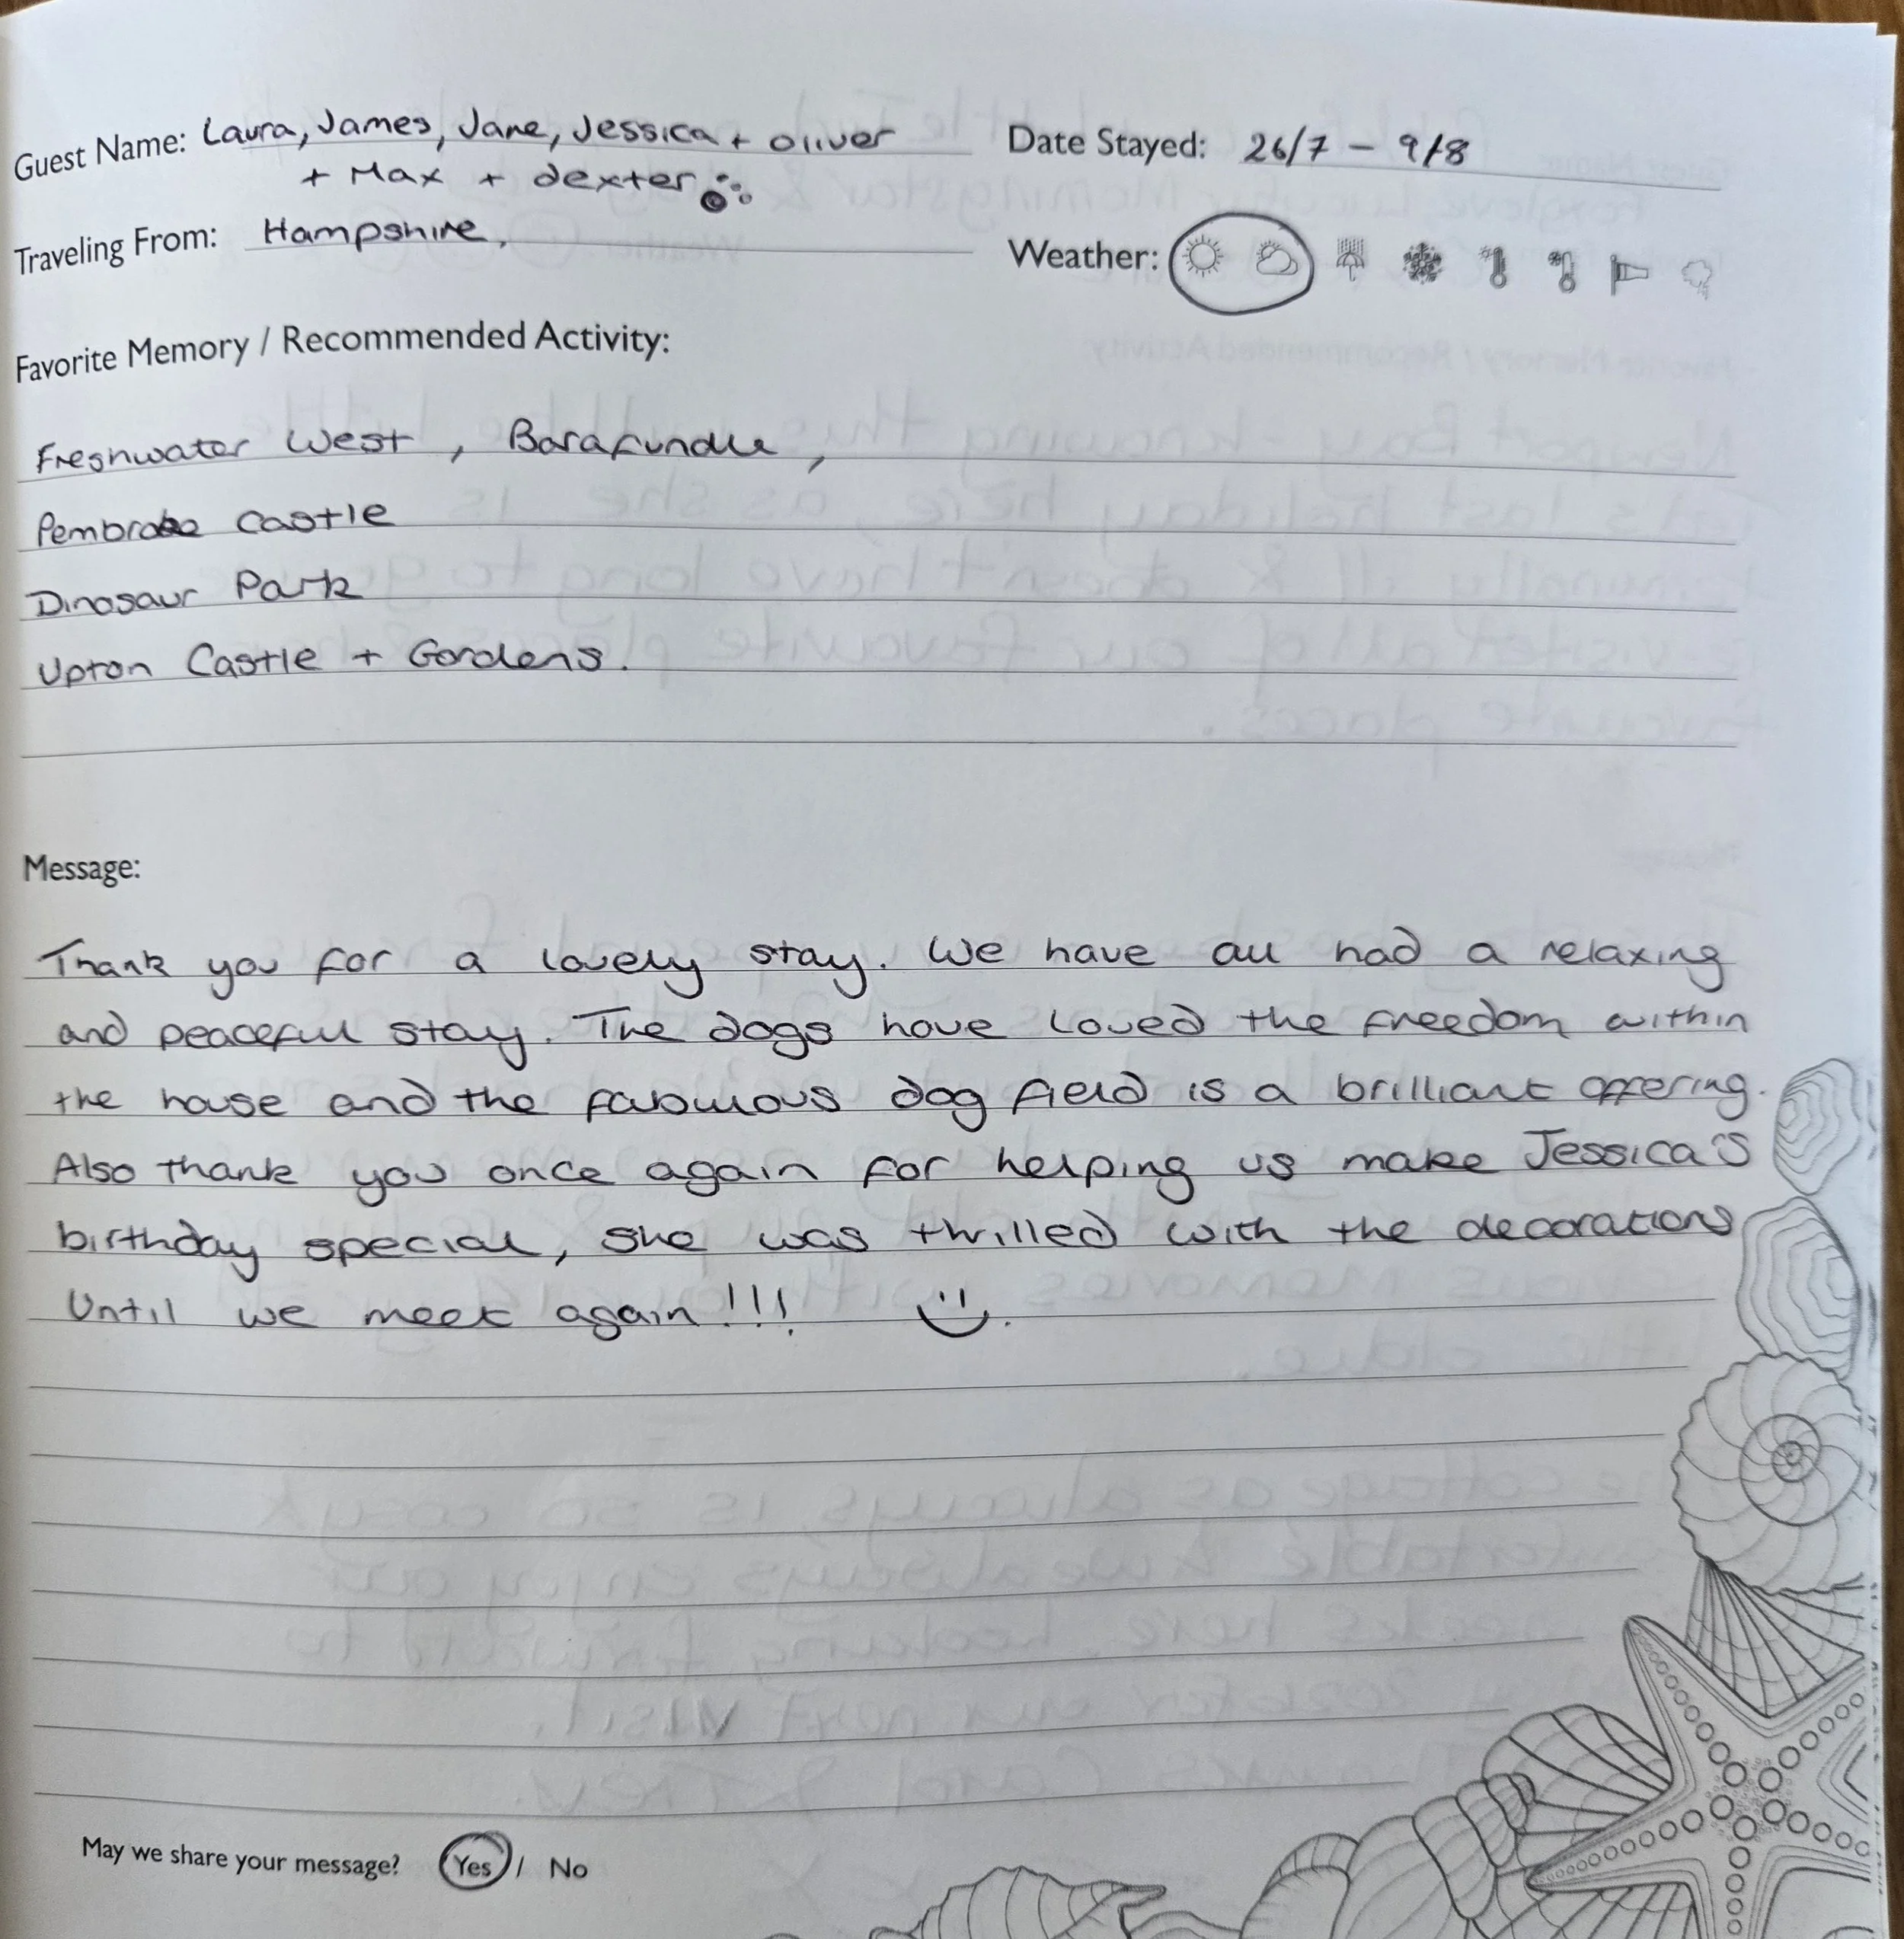 Guest Name: Laura, James, Jane, Jessica + Oliver
+ Max + dexter
Date Stayed: 26/7 - 9/8
Traveling From: Hampshire.
Weather:
Favorite Memory / Recommended Activity:
Freshwater West, Barafundle,
Pembroke Castle
Dinosaur Park
Upton Castle + Gardens.
Message:
Thank you for a lovely stay. We have all had a relaxing
and peaceful stay. The dogs have loved the freedom within
the house and the fabulous dog field is a brilliant offering.
Also thank you once again for helping us make Jessica's
birthday special, she was thrilled with the decorations
Until we meet again!!! :).
May we share your message? Yes / No